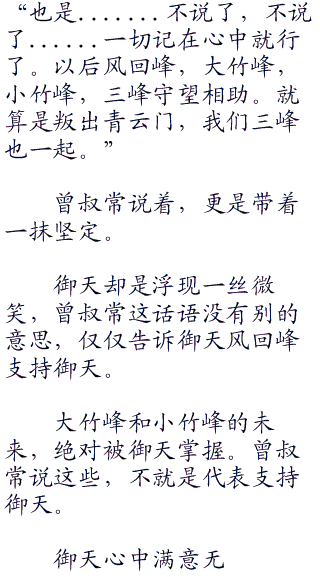 “也是.......不说了，不说
了......一切记在心中就行
了。以后风回峰，大竹峰，
小竹峰，三峰守望相助。就
算是叛出青云门，我们三峰
也一起。”
曾叔常说着，更是带着
一抹坚定。
御天却是浮现一丝微
笑，曾叔常这话语没有别的
意思，仅仅告诉御天风回峰
支持御天。
大竹峰和小竹峰的未
来，绝对被御天掌握。曾叔
常说这些，不就是代表支持
御天。
御天心中满意无